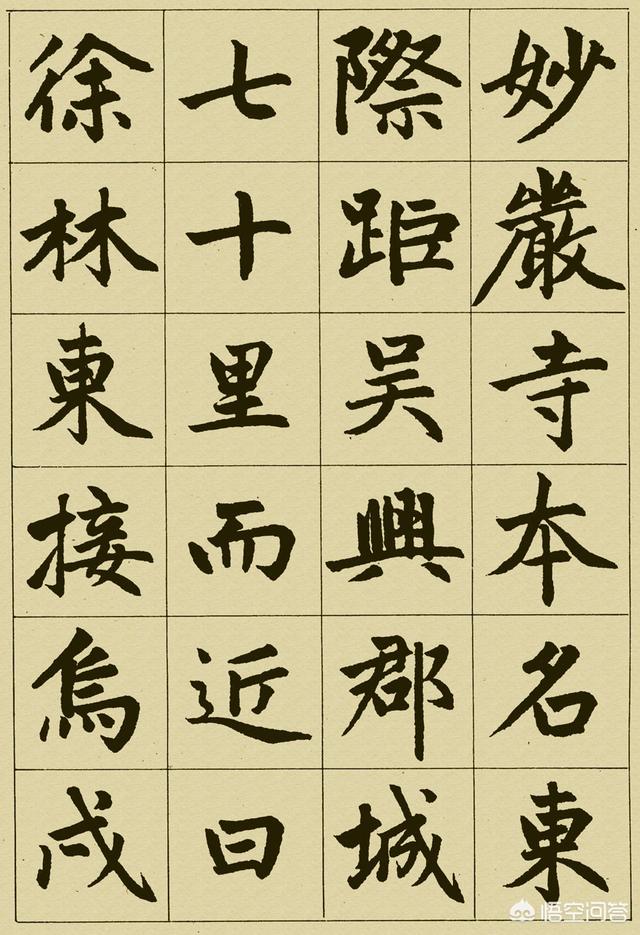 妙嚴寺本名東
際距吴興郡城
七十里而近曰
徐林東接烏戍
悟空问答